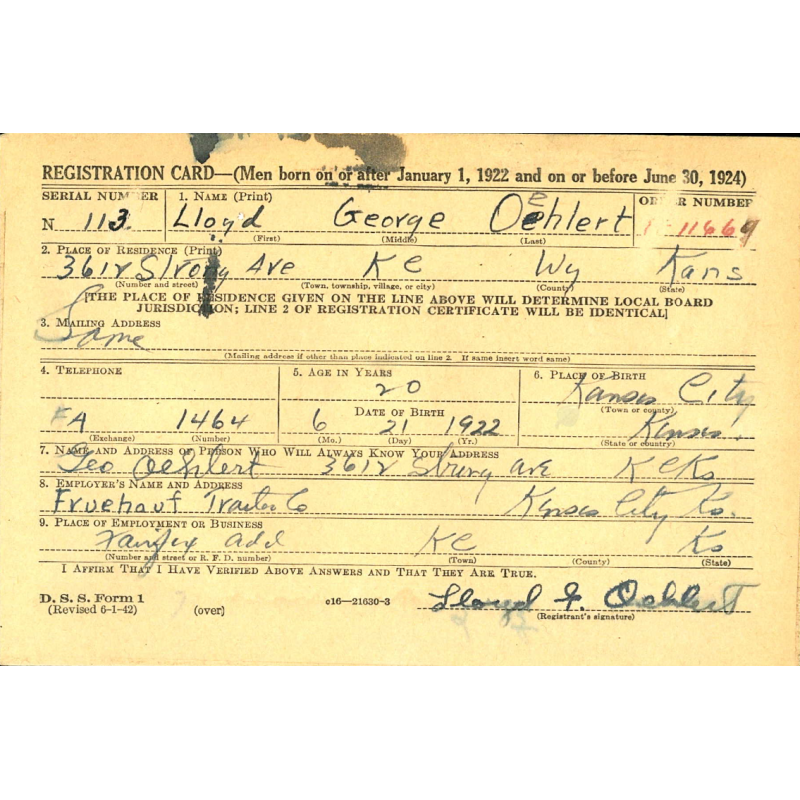 REGISTRATION CARD—(Men born on or after January 1, 1922 and on or before June 30, 1924)
SERIAL NUMBER 1. NAME (Print) ORDER NUMBER
N 113 Lloyd George Oehlert 11669
(First) (Middle) (Last)
2. PLACE OF RESIDENCE (Print)
3612 Strong Ave KC Wy Kans
(Number and street) (Town, township, village, or city) (County) (State)
[THE PLACE OF RESIDENCE GIVEN ON THE LINE ABOVE WILL DETERMINE LOCAL BOARD
JURISDICTION; LINE 2 OF REGISTRATION CERTIFICATE WILL BE IDENTICAL]
3. MAILING ADDRESS
Same
(Mailing address if other than place indicated on line 2. If same insert word same)
4. TELEPHONE 5. AGE IN YEARS 6. PLACE OF BIRTH
20 Kansas City
DATE OF BIRTH (Town or county)
FA 1464 6 21 1922 Kansas
(Exchange) (Number) (Mo.) (Day) (Yr.) (State or country)
7. NAME AND ADDRESS OF PERSON WHO WILL ALWAYS KNOW YOUR ADDRESS
Geo Oehlert 3612 Strong ave KCKs
8. EMPLOYER'S NAME AND ADDRESS
Fruehauf Trailer Co Kansas City Ks.
9. PLACE OF EMPLOYMENT OR BUSINESS
Fairfax add KC Ks
(Number and street or R. F. D. number) (Town) (County) (State)
I AFFIRM THAT I HAVE VERIFIED ABOVE ANSWERS AND THAT THEY ARE TRUE.
D. S. S. Form 1
(Revised 6-1-42) (over) c16—21630-3 Lloyd G. Oehlert
(Registrant's signature)